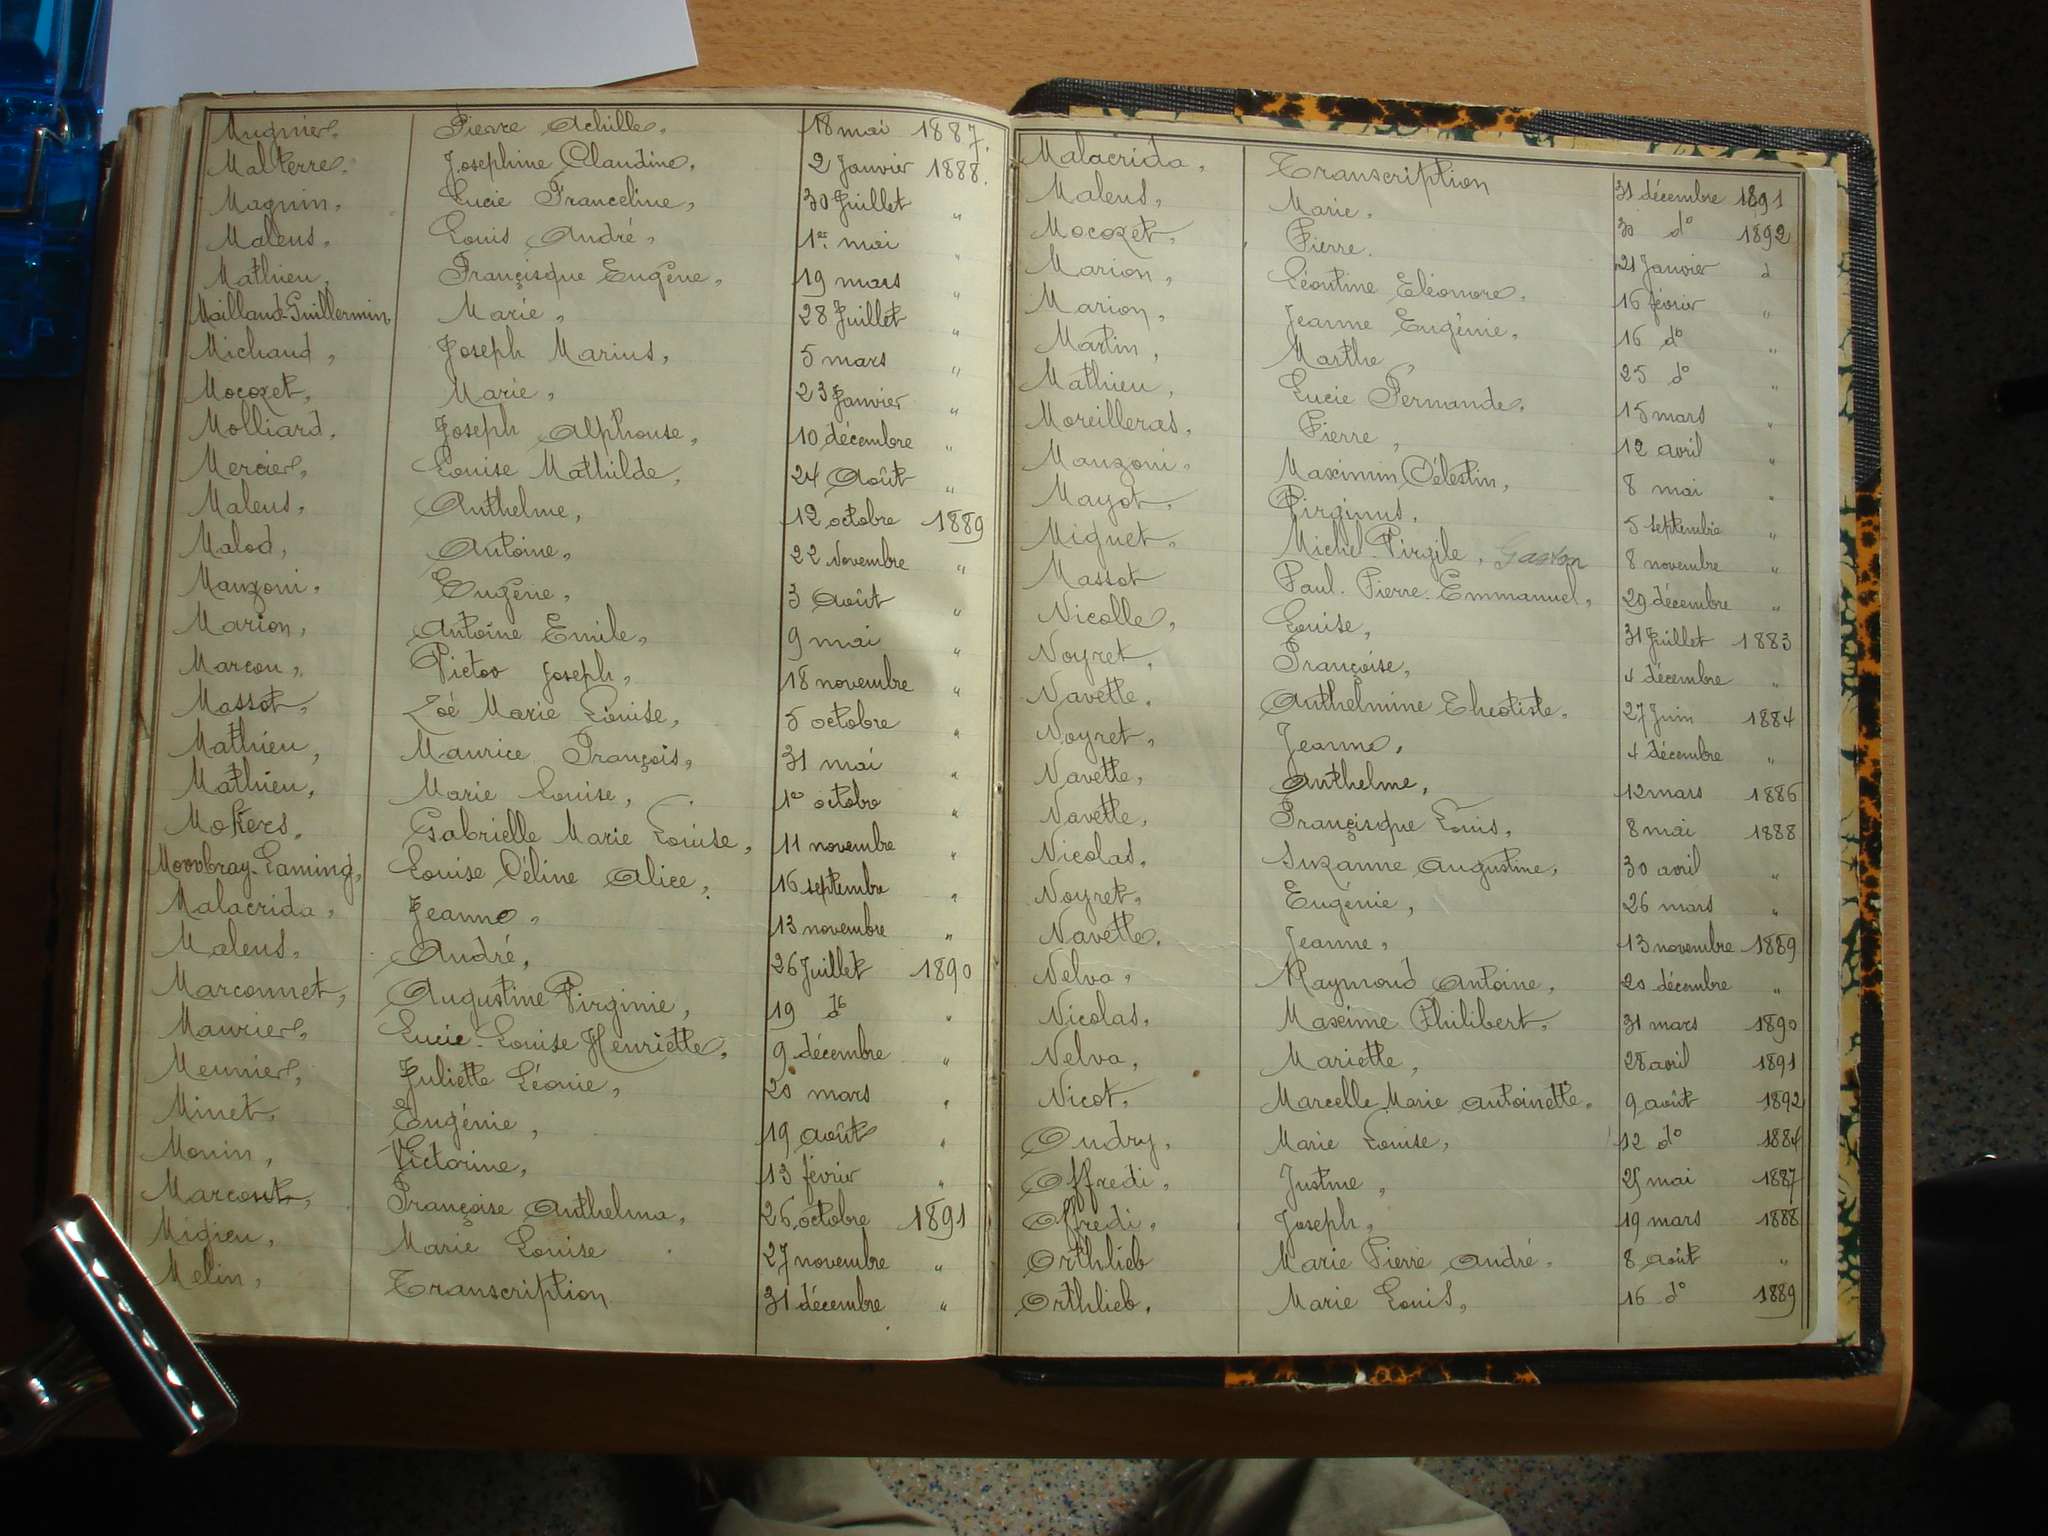 Mugnier, Pierre Achille, 18 mai 1887.
Malterre, Josephine Claudine, 2 Janvier 1888.
Magnin, Lucie Franceline, 30 Juillet "
Maleus, Louis André, 1er mai "
Mathieu, Françisque Eugène, 19 mars "
Mailland-Guillermin Marie, 28 Juillet "
Michaud, Joseph Marius, 5 mars "
Mocozet, Marie, 23 Janvier "
Molliard, Joseph Alphonse, 10 décembre "
Mercier, Louise Mathilde, 24 Août "
Maleus, Anthelme, 12 octobre 1889
Malod, Antoine, 22 Novembre "
Manzoni, Eugène, 3 Août "
Marion, Antoine Emile, 9 mai "
Marcou, Victor Joseph, 18 novembre "
Massot, Zoé Marie Louise, 5 octobre "
Mathieu, Maurice François, 31 mai "
Mathieu, Marie Louise, octobre "
Mokers, Gabrielle Marie Louise, 11 novembre "
Laming, Louise Céline Alice, 16 septembre "
Malacrida, Jeanne, 13 novembre "
Maleus, André, 26 Juillet 1890
Marconnet, Augustine Virginie, 19 "
Maurier, Lucie-Louise Henriette, 9 décembre "
Meunier, Juliette Léonie, 20 mars "
Minet, Eugénie, 19 août "
Monin, Victorine, 13 févrir "
Françoise Anthelma, 26 octobre 1891
Migieu, Marie Louise 27 novembre "
Melin, Transcription 31 décembre "
Malacrida, Transcription 31 décembre 1891
Maleus, Marie, 30 do 1892
Mocozet, Pierre. 21 Janvier d
Marion, Léontine Eléonore, 16 févrir "
Marion, Jeanne Eugénie, 16 do "
Martin, Marthe, 25 do "
Mathieu, Lucie Fernande, 15 mars "
Moreilleras, Pierre, 12 avril "
Manzoni, Maximin Célestin, 8 mai "
Mayot, Virginus, 5 septembre "
Miguet, Michel-Virgile, Gaston 8 novembre "
Massot Paul-Pierre-Emmanuel, 29 décembre "
Nicolle, Louise, 31 Juillet 1883
Noyret, Françoise, 4 décembre "
Navette, Anthelmine 27 Juin 1884
Noyret, Jeanne, 4 décembre "
Navette, Anthelme, 12 mars 1886
Navette, Françisque Louis, 8 mai 1888
Nicolas, Suzanne Augustine, 30 avril "
Noyret, Eugénie, 26 mars "
Navette, Jeanne, 13 novembre 1889
Nelva, Raymond Antoine, 20 décembre "
Nicolas, Maxime Philibert, 31 mars 1890
Nelva, Mariette, 28 avril 1891
Nicot, Marcelle Marie Antoinette, 9 août 1892
Oudry, Marie Louise, 12 do 1884
Offredi, Justine, mai 1887
Offredi, Joseph, 19 mars 1888
Orthlieb Marie Pierre André. 8 août "
Orthlieb, Marie Louis, 16 do 1889